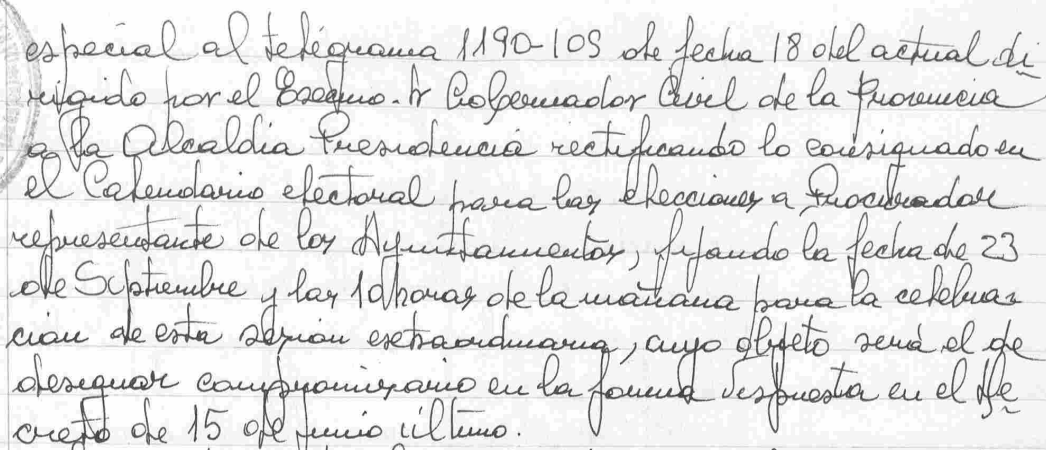 especial al telégrama 1190-105 de fecha 18 del actual di
rigido por el Excmo. Sr Gobernador Civil de la Provincia
a la Alcaldia Presidencia rectificando lo consignado en
el Calendario electoral para las elecciones a Procurador
representante de los Ayuntamientos, fijando la fecha de 23
de Septiembre y las 10 horas de la mañana para la celebra
ción de esta sesión extraordinaria, cuyo objeto será el de
desiguar compromisario en la forma dispuesta en el De
creto de 15 de Junio último.